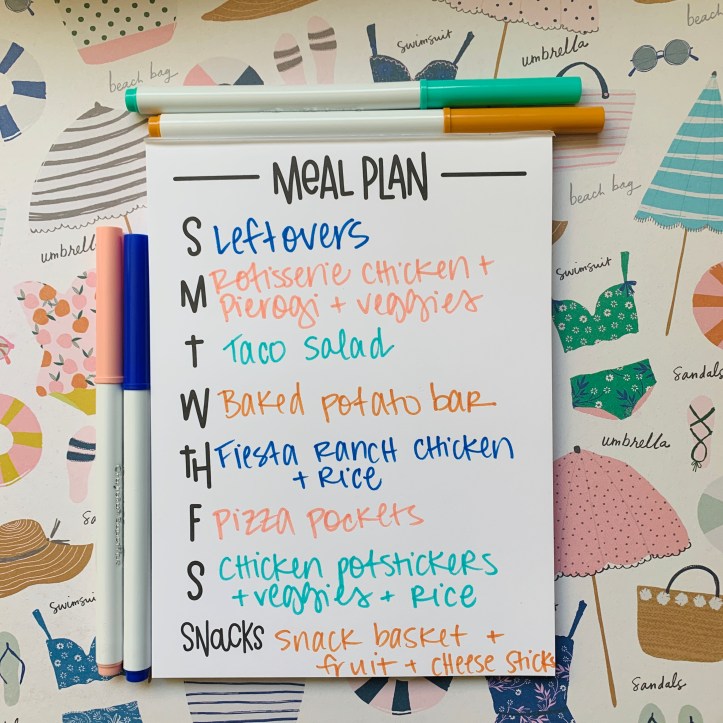 beach bag
Swimsuit
umbrella
beach
MEAL PLAN
S Leftovers
M Rotisserie Chicken +
Pierogi + veggies
T Taco Salad
W Baked potato bar
TH Fiesta Ranch Chicken
+ Rice
F Pizza pockets
S Chicken potstickers
+ veggies + Rice
SNACKS snack basket +
fruit + cheese sticks
umbrell
Sa
Swimsui
beach bag
Swimsuit
Sandals
umbrella
Sandals